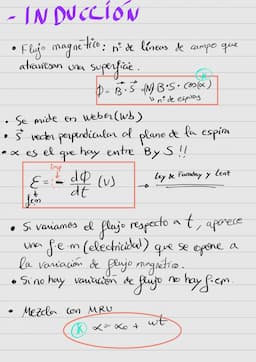 - INDUCCIÓN
• Flujo magnético: nº de líneas de campo que
atraviesan una superficie.
Φ = B · S = (N) B · S · cos(α)
nº de espiras
• Se mide en Weber (Wb)
• S vector perpendicular al plano de la espira
• α es el que hay entre B y S !!
Imp
ε = - dΦ/dt (V) → Ley de Faraday y Lenz
fem
• Si variamos el flujo respecto a t, aparece
una f.e.m (electricidad) que se opone a
la variación de flujo magnético.
• Si no hay variación de flujo no hay f.e.m.
• Mezcla con MRU
* α = α₀ + ωt